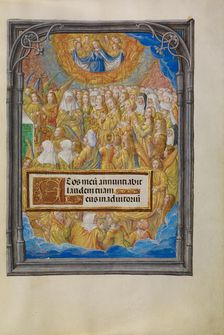 Os meū annunciabit
laudem tuam.
Deus in adiutoriū